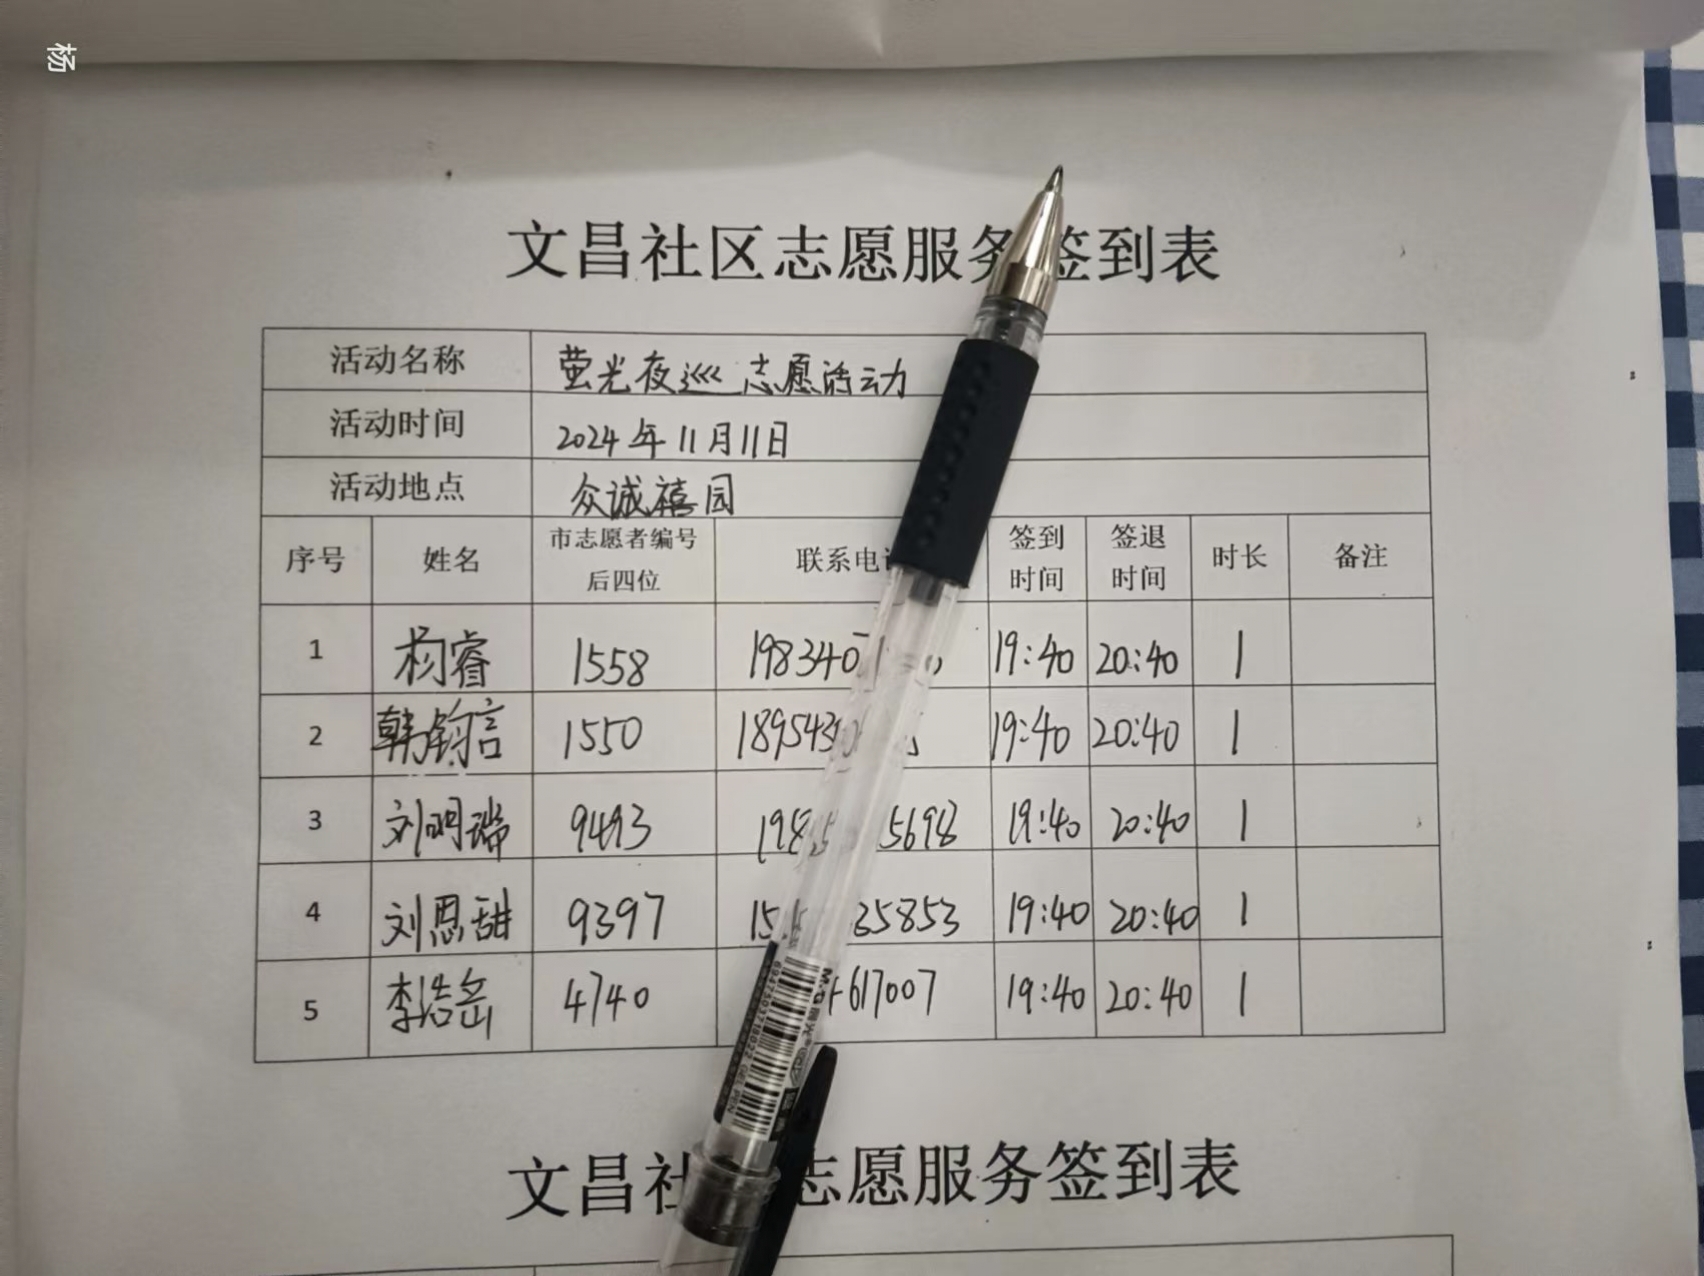 杨
文昌社区志愿服务签到表
活动名称 萤光夜巡志愿活动
活动时间 2024年11月11日
活动地点 众诚禧园
序号 姓名 市志愿者编号后四位 联系电 签到时间 签退时间 时长 备注
1 杨睿 1558 198340 19:40 20:40 1
2 韩钧言 1550 1895430 19:40 20:40 1
3 刘明瑞 9493 198 5698 19:40 20:40 1
4 刘恩甜 9397 15 35853 19:40 20:40 1
5 李浩岳 4740 617007 19:40 20:40 1
M&G晨光
GEL PEN
文昌社 志愿服务签到表